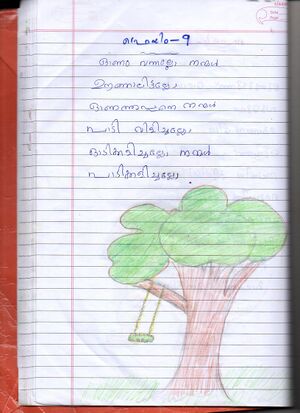 ഫ്രെയിം-9
ഓണം വന്നല്ലോ നമ്മൾ
ഊഞ്ഞാലിട്ടല്ലോ
ഓണത്തപ്പനെ നമ്മൾ
പാടി വിളിച്ചല്ലോ
ഓടിക്കളിച്ചല്ലോ നമ്മൾ
പാടിക്കളിച്ചല്ലോ